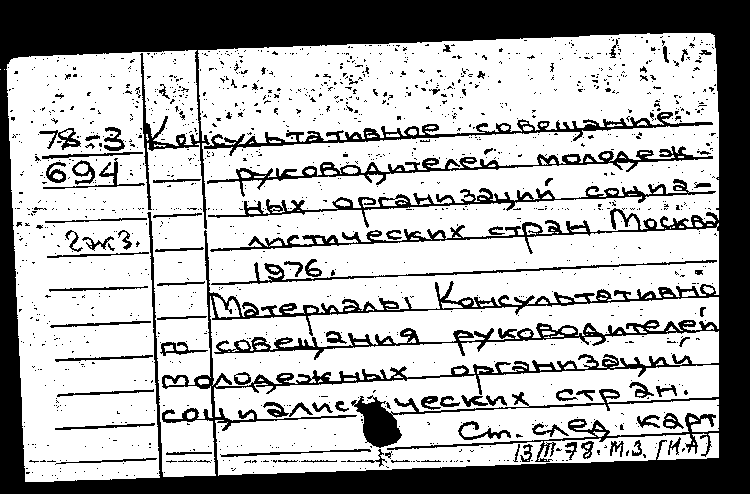 78-3 Консультативное совещание
694 руководителей молодеж-
ных организаций социа-
2экз. листических стран. Москва
1976.
Материалы Консультативно
го совещания руководителей
молодежных организаций
социалистических стран.
См. след. карт
13/III-78. М.З. [И.А]